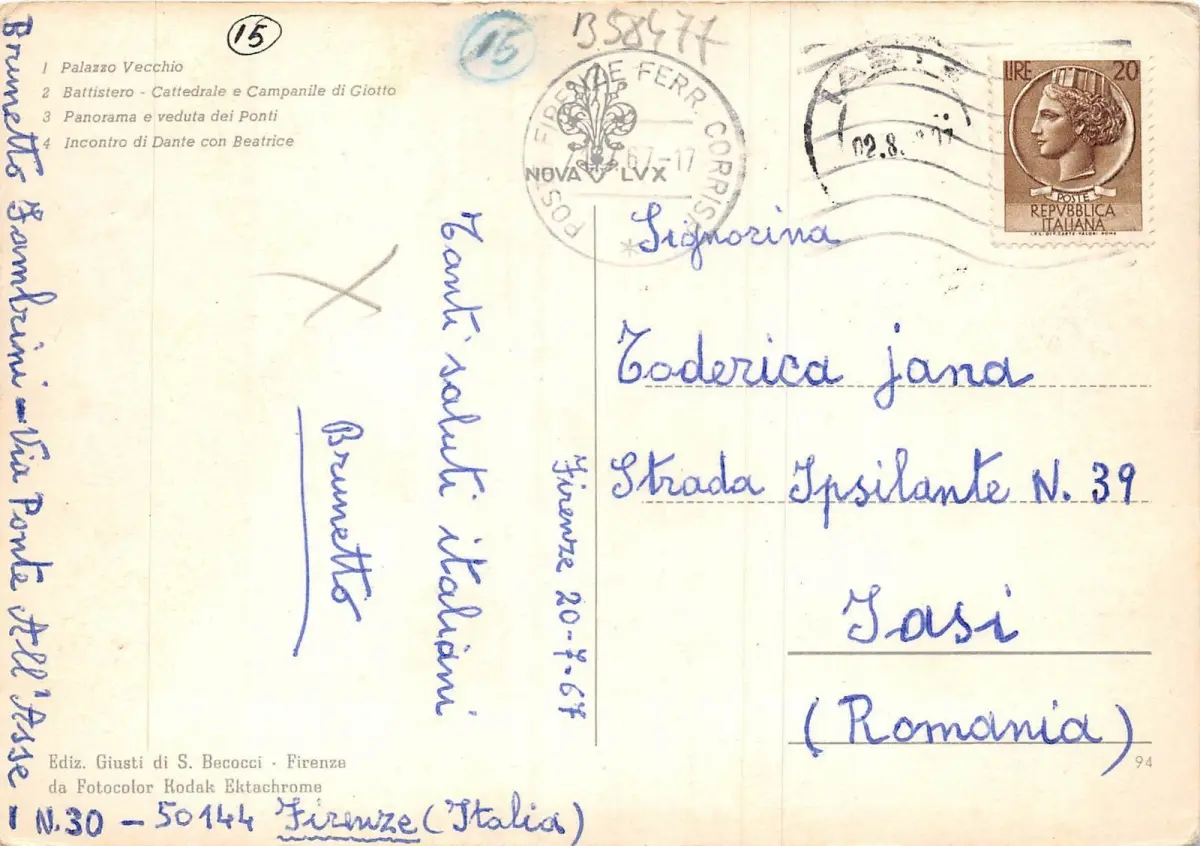 15
15
B58477
1 Palazzo Vecchio
2 Battistero - Cattedrale e Campanile di Giotto
3 Panorama e veduta dei Ponti
4 Incontro di Dante con Beatrice
POSTE FIRENZE FERR. CORRISP
67-17
NOVA LVX
02.8.
LIRE 20
POSTE
REPVBBLICA
ITALIANA
Tanti saluti italiani
Brunetto
Firenze 20-7-67
Signorina
Toderica Jana
Strada Ipsilante N. 39
Iasi
(Romania)
94
Ediz. Giusti di S. Becocci - Firenze
da Fotocolor Kodak Ektachrome
Brunetto Zambrini - Via Ponte All'Asse -
N.30 - 50144 Firenze (Italia)